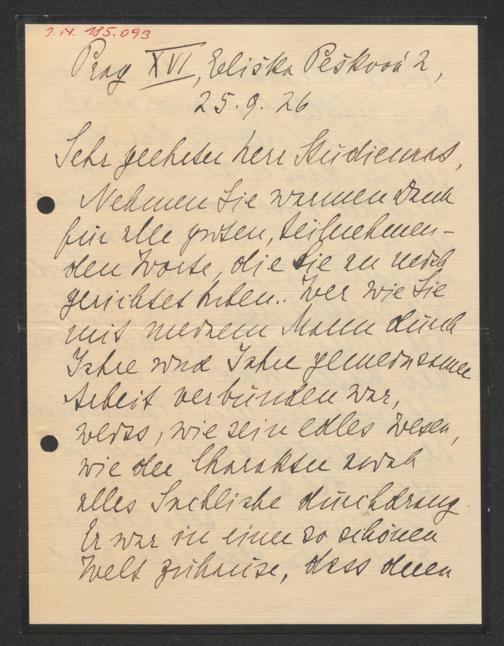 I.N. 185.093
Prag XVI, Eliška Peškova 2,
25.9.26
Sehr geehrter Herr Studienrat,
Nehmen Sie warmen Dank
für alle guten, teilnehmen-
den Worte, die Sie an mich
gerichtet haben.. Wer wie Sie
mit meinem Mann durch
Jahre und Jahre gemeinsamer
Arbeit verbunden war,
weiss, wie sein edles Wesen,
wie der Charakter auch
alles Sachliche durchdrang.
Er war in einer so schönen
Welt zuhause, dass deren